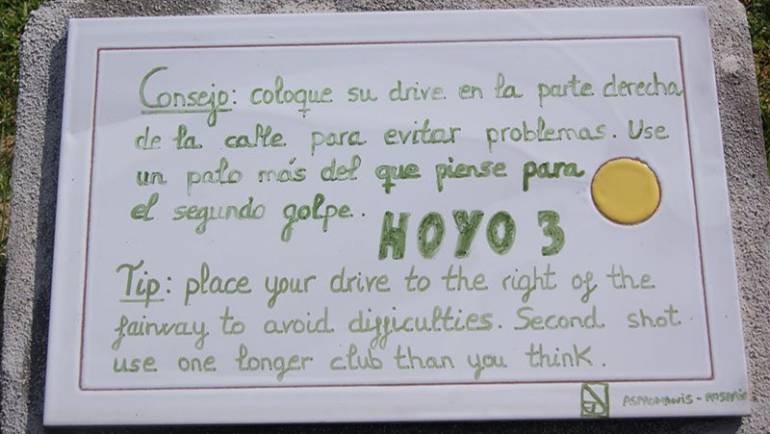 Consejo: coloque su drive en la parte derecha
de la calle para evitar problemas. Use
un palo más del que piense para
el segundo golpe.
HOYO 3
Tip: place your drive to the right of the
fairway to avoid difficulties. Second shot
use one longer club than you think.